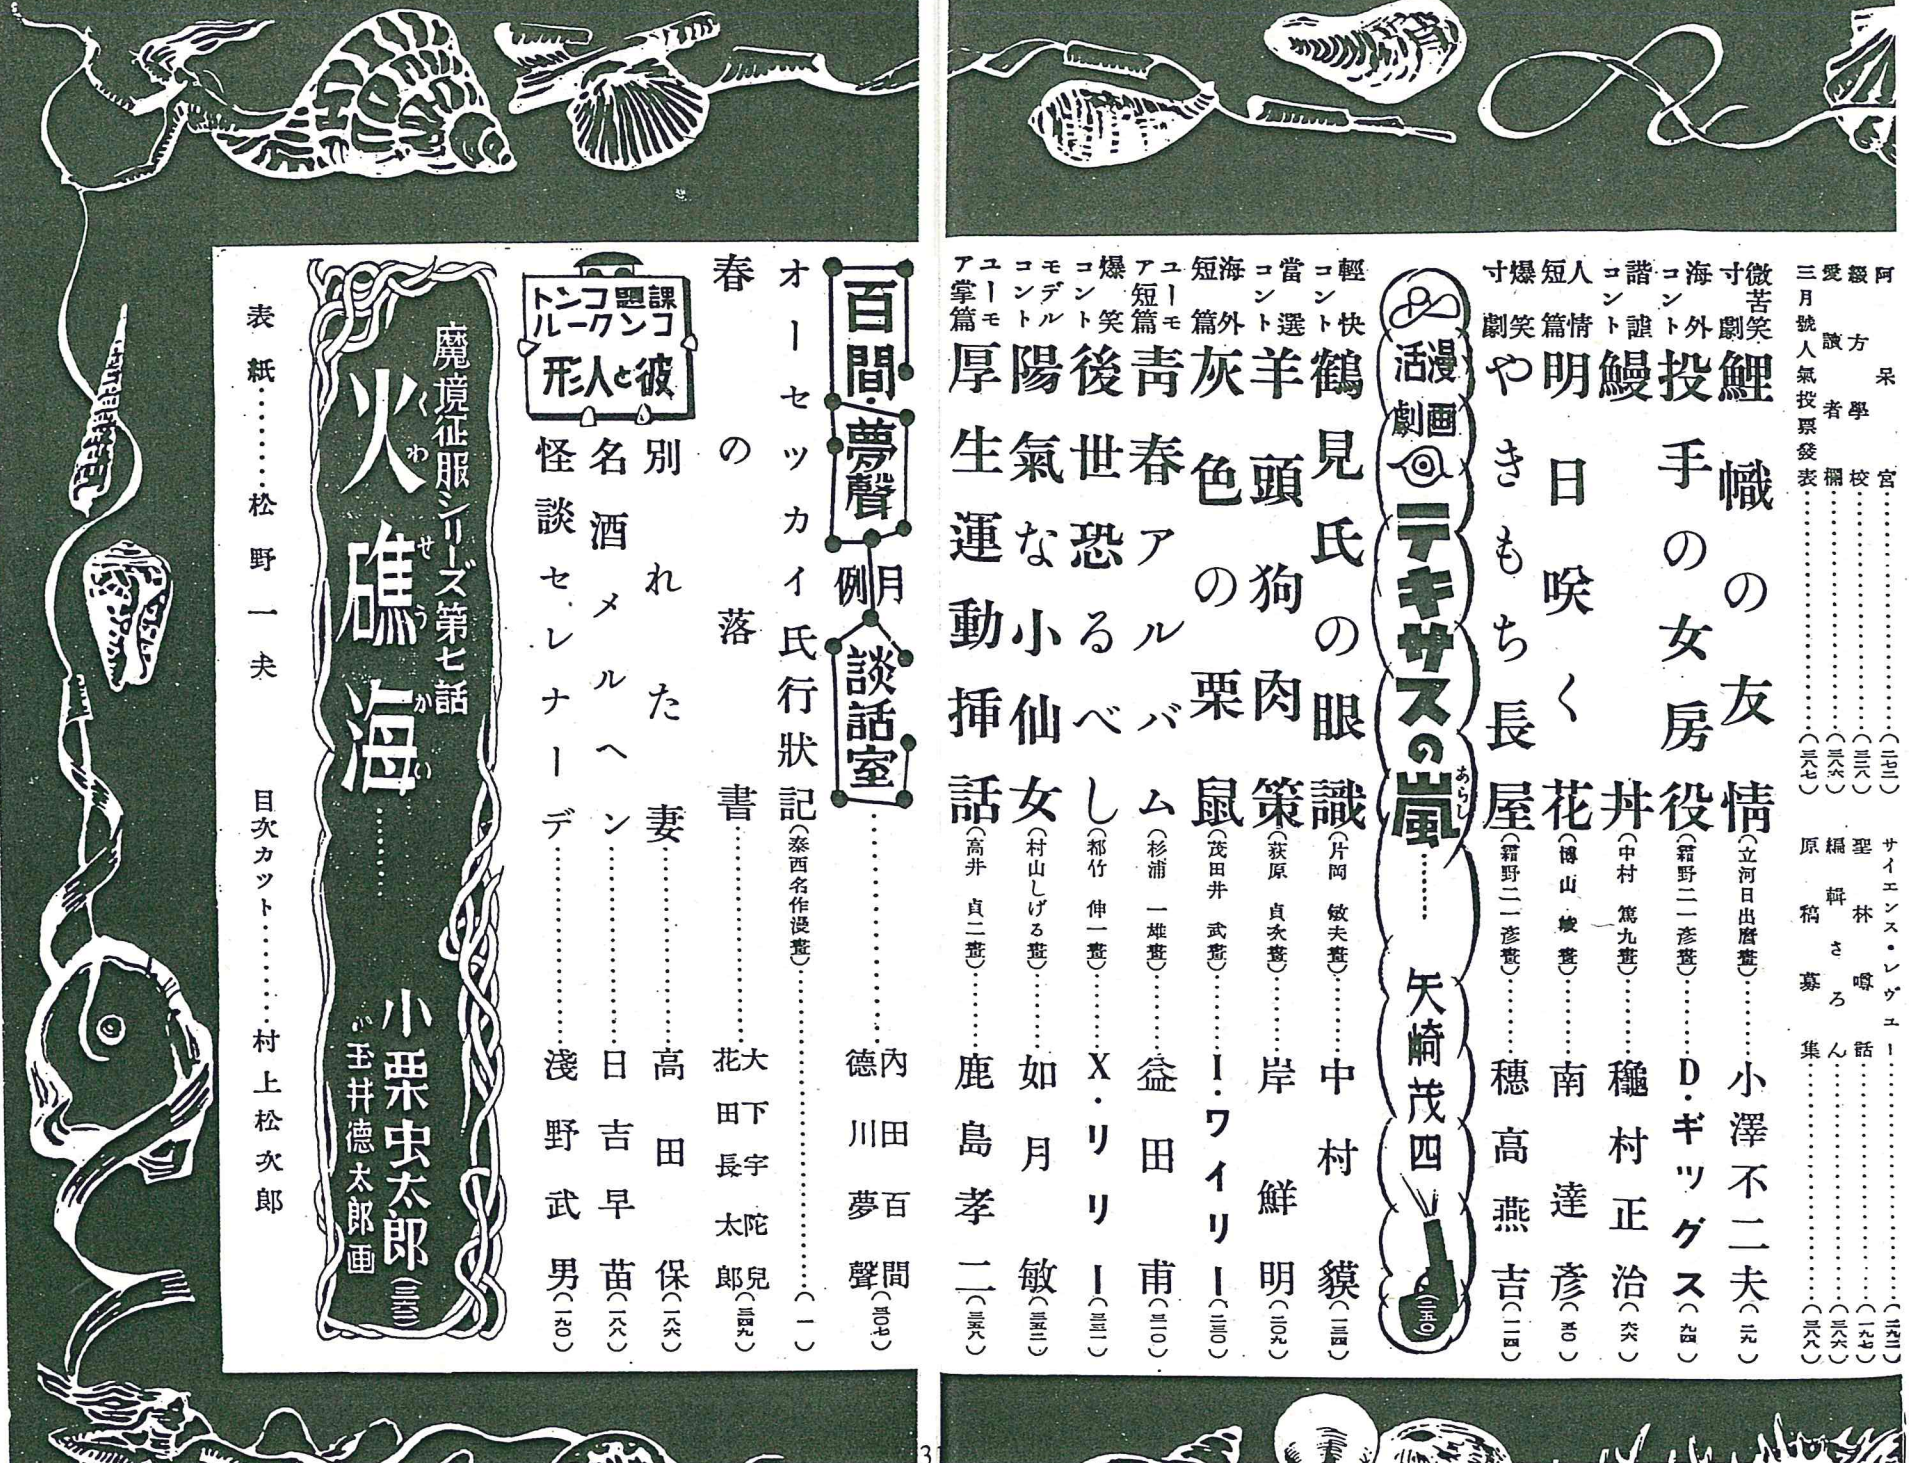 阿呆宮……(二七二)
綴方學校……(三三八)
愛讀者欄……(三八六)
三月號人氣投票發表……(三八七)
サイエンス・レヴュー……(二九二)
聖林噂話……(一九七)
編輯さろん……(三八六)
原稿募集……(三八八)
微苦笑寸劇 鯉幟の友情(立河日出暦畫)……小澤不二夫(二九)
海外コント 投手の女房役(霜野二一彦畫)……D・ギッグス(九四)
諧謔コント 鰻丼(中村篤九畫)……龝村正治(六六)
人情短篇 明日咲く花(博山畫)……南達彦(五〇)
爆笑寸劇 やきもち長屋(霜野二一彦畫)……穗高燕吉(一一四)
漫画活劇 テキサスの嵐……矢崎茂四(二五〇)
あらし
輕快コント 鶴見氏の眼識(片岡敏夫畫)……中村獏(一三四)
當選コント 羊頭狗肉策(荻原貞次畫)……岸鮮明(二〇九)
海外短篇 灰色の栗鼠(茂田井武畫)……I・ワイリー(二三〇)
ユーモア短篇 靑春アルバム(杉浦一雄畫)……益田甫(三一〇)
爆笑コント 後世恐るべし(都竹伸一畫)……X・リリー(三三一)
モデルコント 陽氣な小仙女(村山しげる畫)……如月敏(三五二)
ユーモア掌篇 厚生運動挿話(高井貞二畫)……鹿島孝二(三五八)
百間・夢聲 月例談話室……內田百間 德川夢聲(三〇七)
オーセッカイ氏行狀記(泰西名作漫畫)……(一)
春の落書……大下宇陀兒 花田長太郎(三四九)
課題コント コンクール
彼と人形
別れた妻……高田保(一八六)
名酒メルヘン……日吉早苗(一八八)
怪談セレナーデ……淺野武男(一九〇)
魔境征服シリーズ第七話
火礁海……
くわせうかい
小栗虫太郎(三六二)
玉井德太郎画
表紙……松野一夫
目次カット……村上松次郎
3